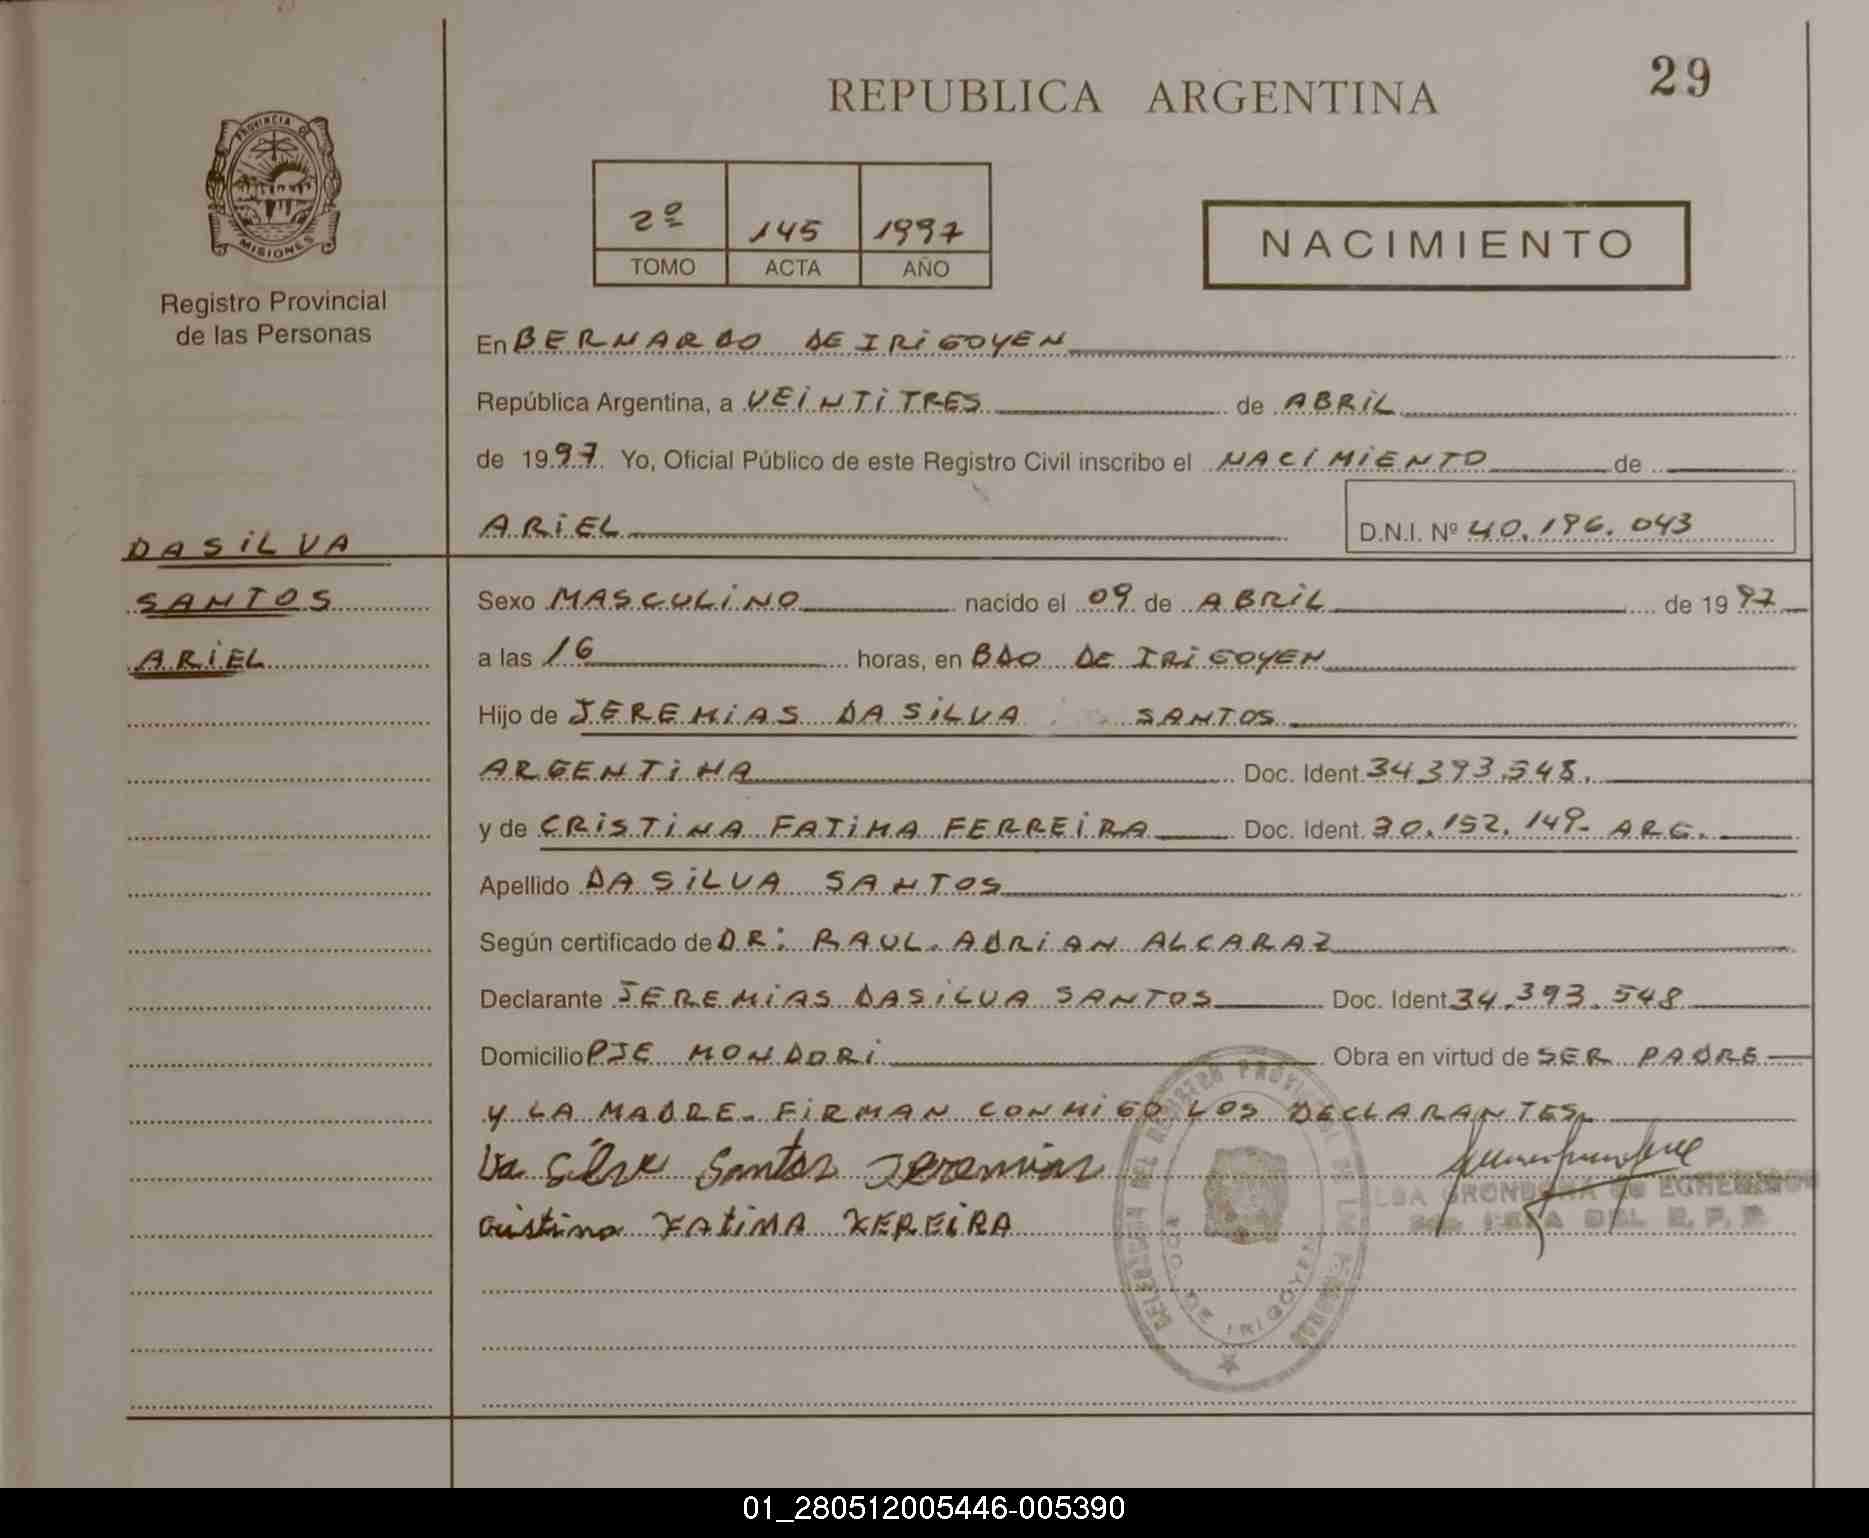 29
REPUBLICA ARGENTINA
PROVINCIA DE
MISIONES
Registro Provincial
de las Personas
2º 145 1997
TOMO ACTA AÑO
NACIMIENTO
En BERNARDO DE IRIGOYEN
República Argentina, a VEINTITRES de ABRIL
de 1997. Yo, Oficial Público de este Registro Civil inscribo el NACIMIENTO de
ARIEL D.N.I. Nº 40.196.043
DASILVA
SANTOS
ARIEL
Sexo MASCULINO nacido el 09 de ABRIL de 1997
a las 16 horas, en BDO DE IRIGOYEN
Hijo de JEREMIAS DASILVA SANTOS
ARGENTINA Doc. Ident. 34.393.548.
y de CRISTINA FATIMA FERREIRA Doc. Ident. 30.152.149- ARG.
Apellido DASILVA SANTOS
Según certificado de DR: RAUL ADRIAN ALCARAZ
Declarante JEREMIAS DASILVA SANTOS Doc. Ident 34.393.548
Domicilio PJE MONDORI Obra en virtud de SER PADRE
Y LA MADRE. FIRMAN CONMIGO LOS DECLARANTES
Da Silva Santos Jeremias
Cristina FATIMA FEREIRA
DELEGACION DEL REGISTRO PROVINCIAL DE LAS PERSONAS
BDO. DE IRIGOYEN
01_280512005446-005390